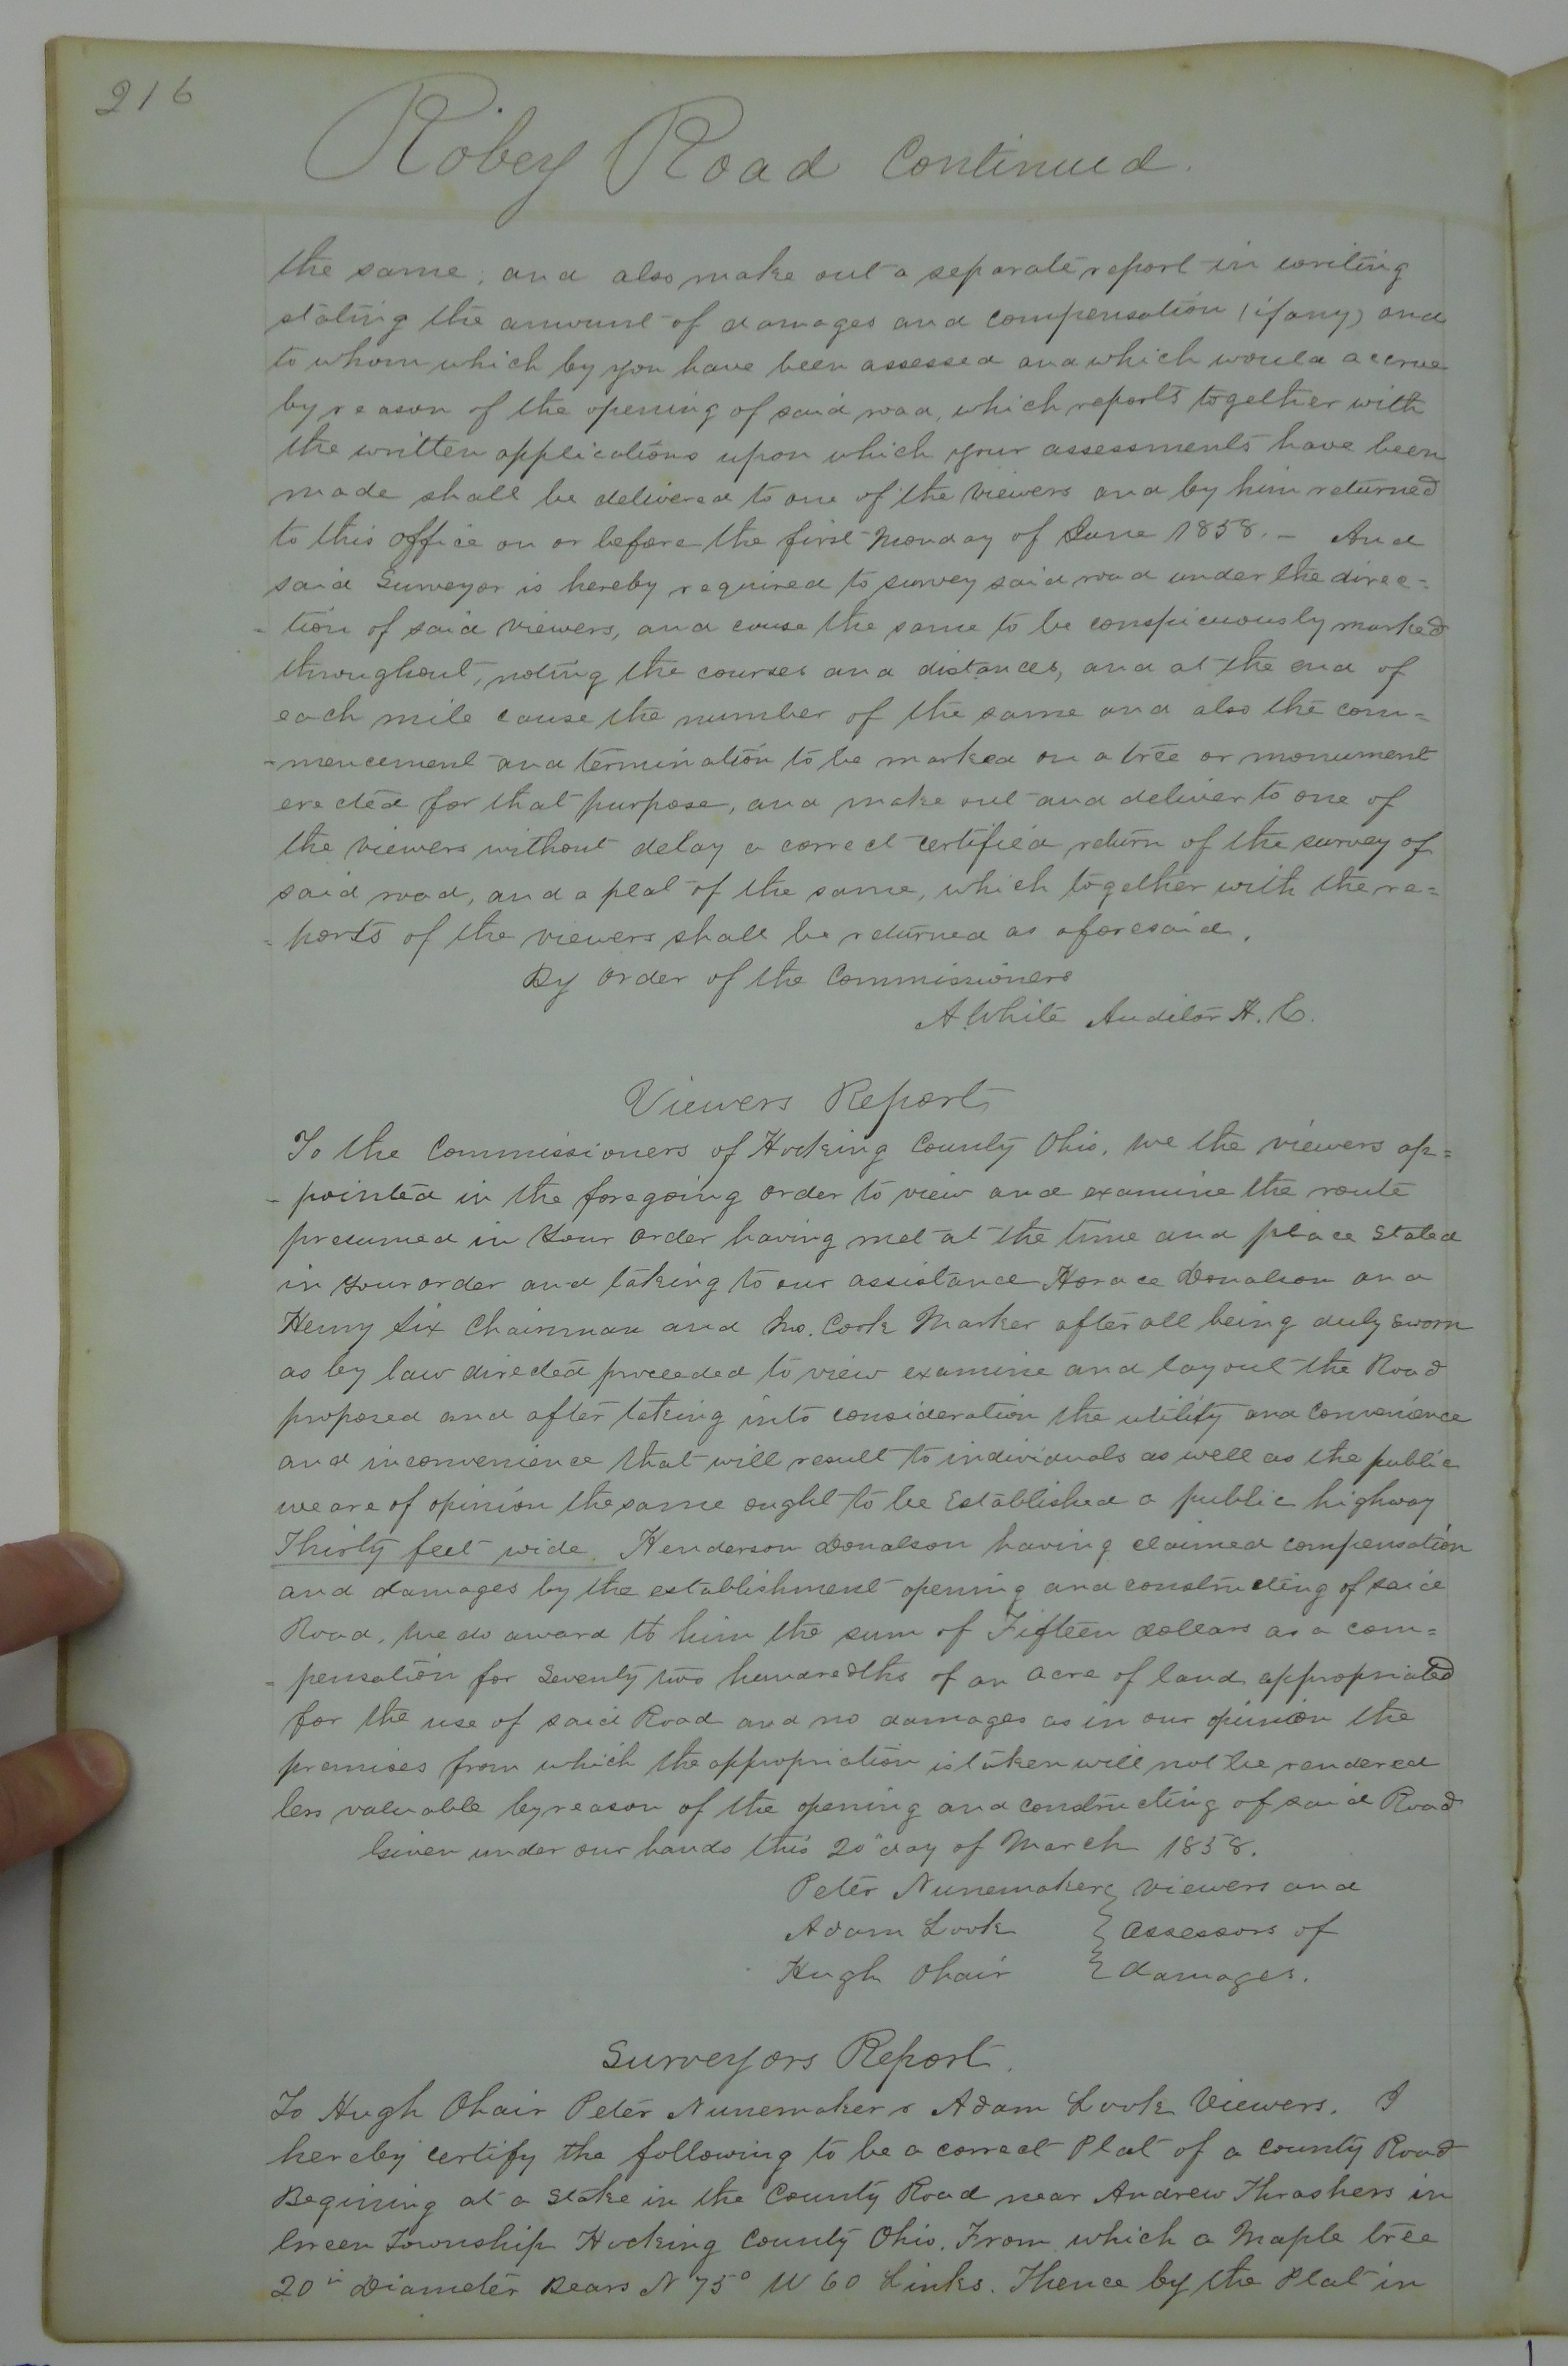 216
Robey Road Continued.
the same, and also make out a separate report in writing
stating the amount of damages and compensation (if any) and
to whom which by you have been assessed and which would accrue
by reason of the opening of said road, which reports together with
the written applications upon which your assessments have been
made shall be delivered to one of the viewers and by him returned
to this office on or before the first Monday of June 1858. - And
said Surveyor is hereby required to survey said road under the direc=
- tion of said viewers, and cause the same to be conspicuously marked
throughout, noting the courses and distances, and at the end of
each mile cause the number of the same and also the com=
-mencement and termination to be marked on a tree or monument
erected for that purpose, and make out and deliver to one of
the viewers without delay a correct certified return of the survey of
said road, and a plat of the same, which together with the re=
= ports of the viewers shall be returned as aforesaid.
By order of the Commissioners
A. White Auditor H. C.
Viewers Report
To the Commissioners of Hocking County Ohio. We the viewers ap=
- pointed in the foregoing order to view and examine the route
presumed in Your order having met at the time and place Stated
in Your order and taking to our assistance Horace Donalson and
Henry Six Chainman and Jno. Cook Marker after all being duly Sworn
as by law directed proceeded to view examine and layout the Road
proposed and after taking into consideration the utility and Convenience
and inconvenience that will result to individuals as well as the public
we are of opinion the same ought to be Established a public highway
Thirty feet wide. Henderson Donalson having claimed compensation
and damages by the establishment opening and constructing of said
Road, We do award to him the sum of Fifteen dollars as a com=
= pensation for Seventy two hundredths of an acre of land appropriated
for the use of said Road and no damages as in our opinion the
premises from which the appropriation is taken will not be rendered
less valuable by reason of the opening and constructing of said Road
Given under our hands this 20" day of March 1858.
Peter Nunemaker } viewers and
Adam Look } assessors of
Hugh Ohair } damages.
Surveyors Report.
To Hugh Ohair Peter Nunemaker & Adam Look Viewers. I
hereby certify the following to be a correct Plat of a County Road
Begining at a Stake in the County Road near Andrew Thrashers in
Green Township Hocking County Ohio. From which a Maple tree
20 in Diameter Bears N 75° W 60 Links. Thence by the Plat in